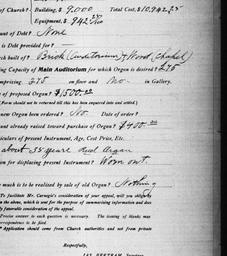 of Church? Building, $ 9.000 Total Cost, $10,942.25
Equipment, $ 942
nt of Debt? None
is Debt provided for? —
rch built of? Brick (Auditorium) & Wood (Chapel)
ing Capacity of Main Auditorium for which Organ is desired? 275
mprising 275 on floor and no in Gallery.
of proposed Organ? $1,500.00
Form should not be returned till this has been enquired into and settled.)
new Organ been ordered? No. Date of order?
unt already raised toward purchase of Organ? $400.00
iculars of present Instrument, Age, Cost Price, Etc.
about 35 years Reed Organ
on for displacing present Instrument? Worn out.
w much is to be realised by sale of old Organ? Nothing
To facilitate Mr. Carnegie's consideration of your appeal, will you
on the above, which is sent for the purpose of summarising information and does
ly favorable consideration of the appeal.
Precise answer to each question is necessary. The stating of blanks may
correspondence to be
Application should come from Church authorities and not from private
Respectfully,
JAS. BERTRAM, Secretary.